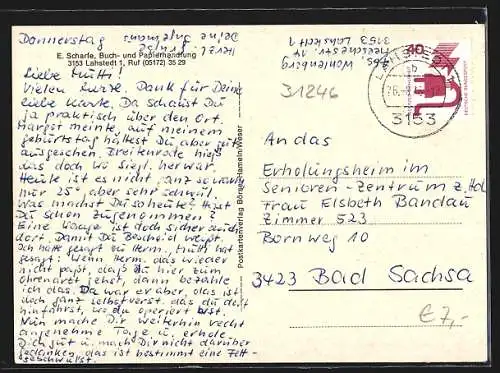 Donnerstag
E. Scharfe, Buch- und Papierhandlung
3153 Lahstedt 1, Ruf (05172) 35 29
Liebe Mutti!
Vielen herzl. Dank für Deine
liebe Karte. Da schaust Du
ja praktisch über den Ort.
Margot meinte, auf meinem
Geburtstag hättest Du aber gut
ausgesehen. Breitenrode hieß
das doch wo Siegl. her war.
Heute ist es nicht ganz so warm
nur 25°, aber sehr schwül.
Was machst Du so heute? Hast
Du schon zugenommen?
Eine Woche ist doch sicher auch
dort. Damit Du Bescheid weißt.
Ich hatte gesagt zu Herm., Mutti hat
gesagt: Wenn Herm. das wieder
nicht paßt, daß Du hier zum
Ohrenarzt gehst, dann bezahle
ich das. Da war er aber, das ist
doch ganz selbstverst. das du dort
hinfährst, wo du operiert bist.
Nun mache Dir weiterhin recht
angenehme Tage u. erhole
Dich gut u. mach Dir nicht darüber
Gedanken, das ist bestimmt eine Fett-
geschwulst.
Herzl. Grüße
Deine
Postkartenverlag Börner, Hameln/Weser
Abs. Wohlenberg
14
3153 Lahstedt 1
31246
LAHSTEDT 1
sb
3153
40
DEUTSCHE BUNDESPOST
An das
Erholungsheim im
Senioren-Zentrum z. Hd.
Frau Elsbeth Bandau
Zimmer 523
Bornweg 10
3423 Bad Sachsa
€ 7,-